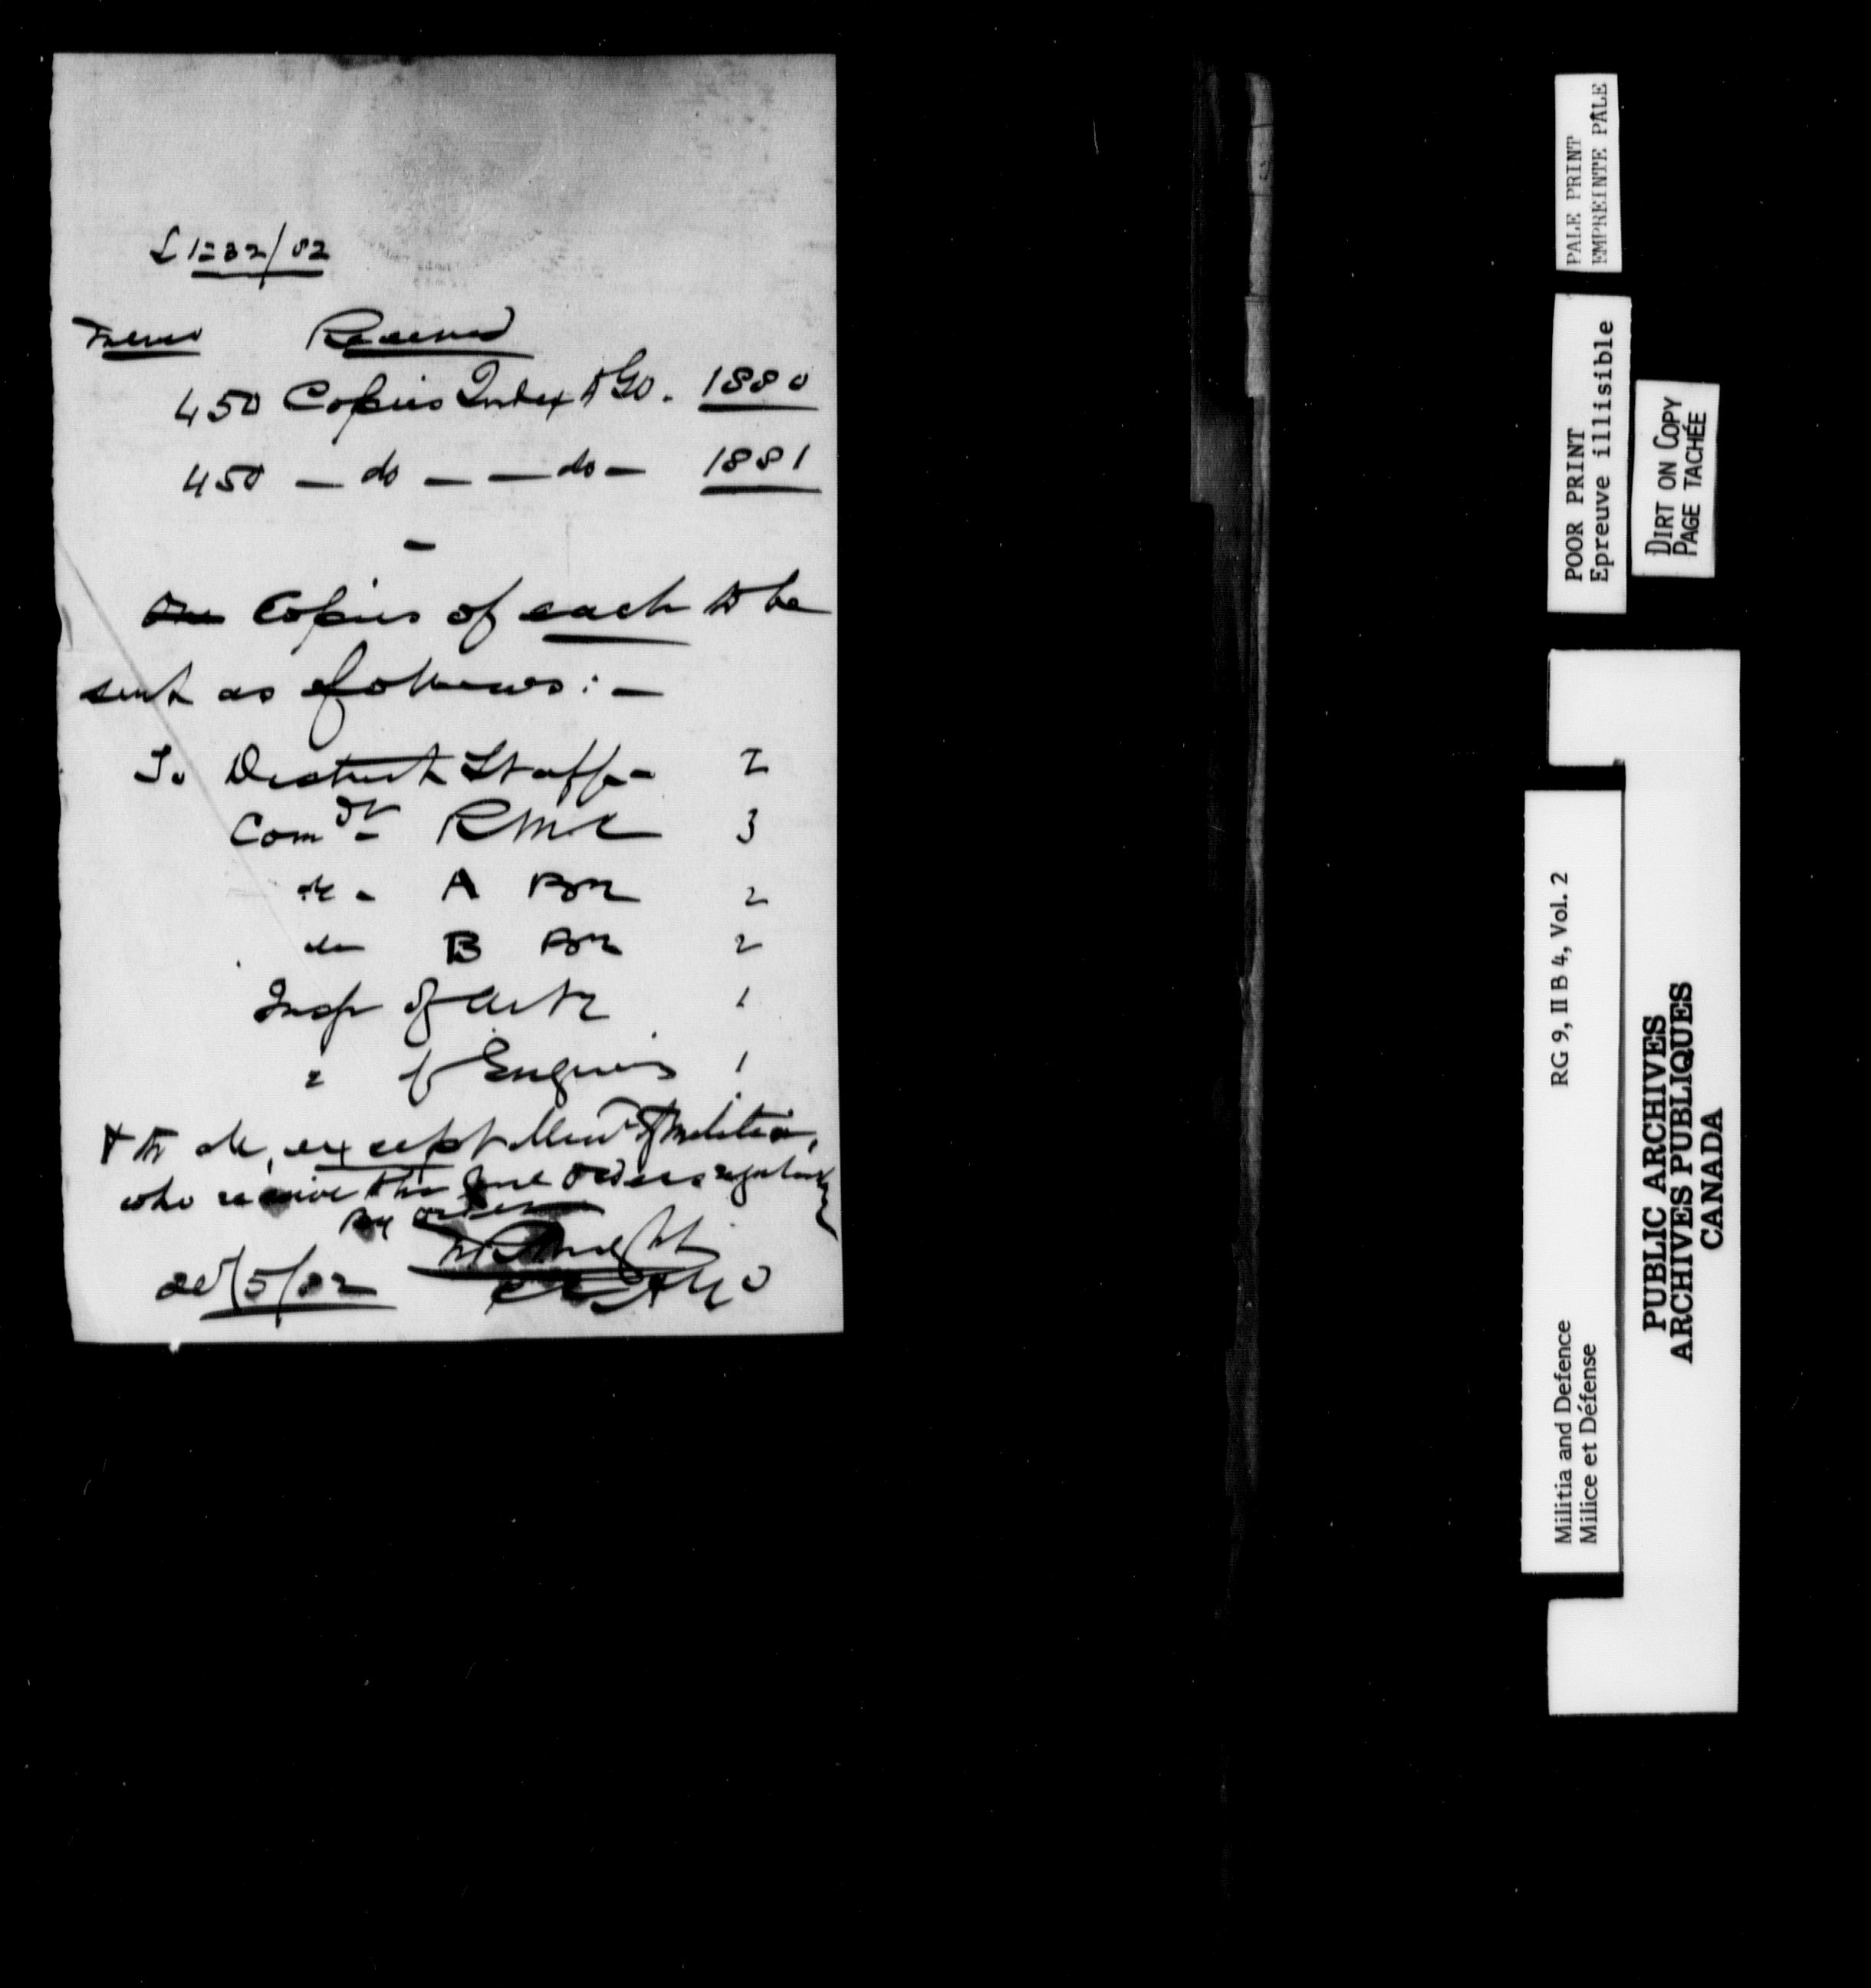 1232/82
Memo Received
450 Copies Index to GO. 1880
450 — do — — do — 1881
—
Copies of each to be
sent as follows: —
To District Staff - 2
Comdt - RMC 3
do - A By 2
do B By 2
Insp of Arty 1
" of Engineers 1
& to all, except Min of Militia,
who receive the orders regularly
By order
/5/82
PALE PRINT
EMPREINTE PÂLE
POOR PRINT
Epreuve illisible
DIRT ON COPY
PAGE TACHÉE
Militia and Defence RG 9, II B 4, Vol. 2
Milice et Défense
PUBLIC ARCHIVES
ARCHIVES PUBLIQUES
CANADA